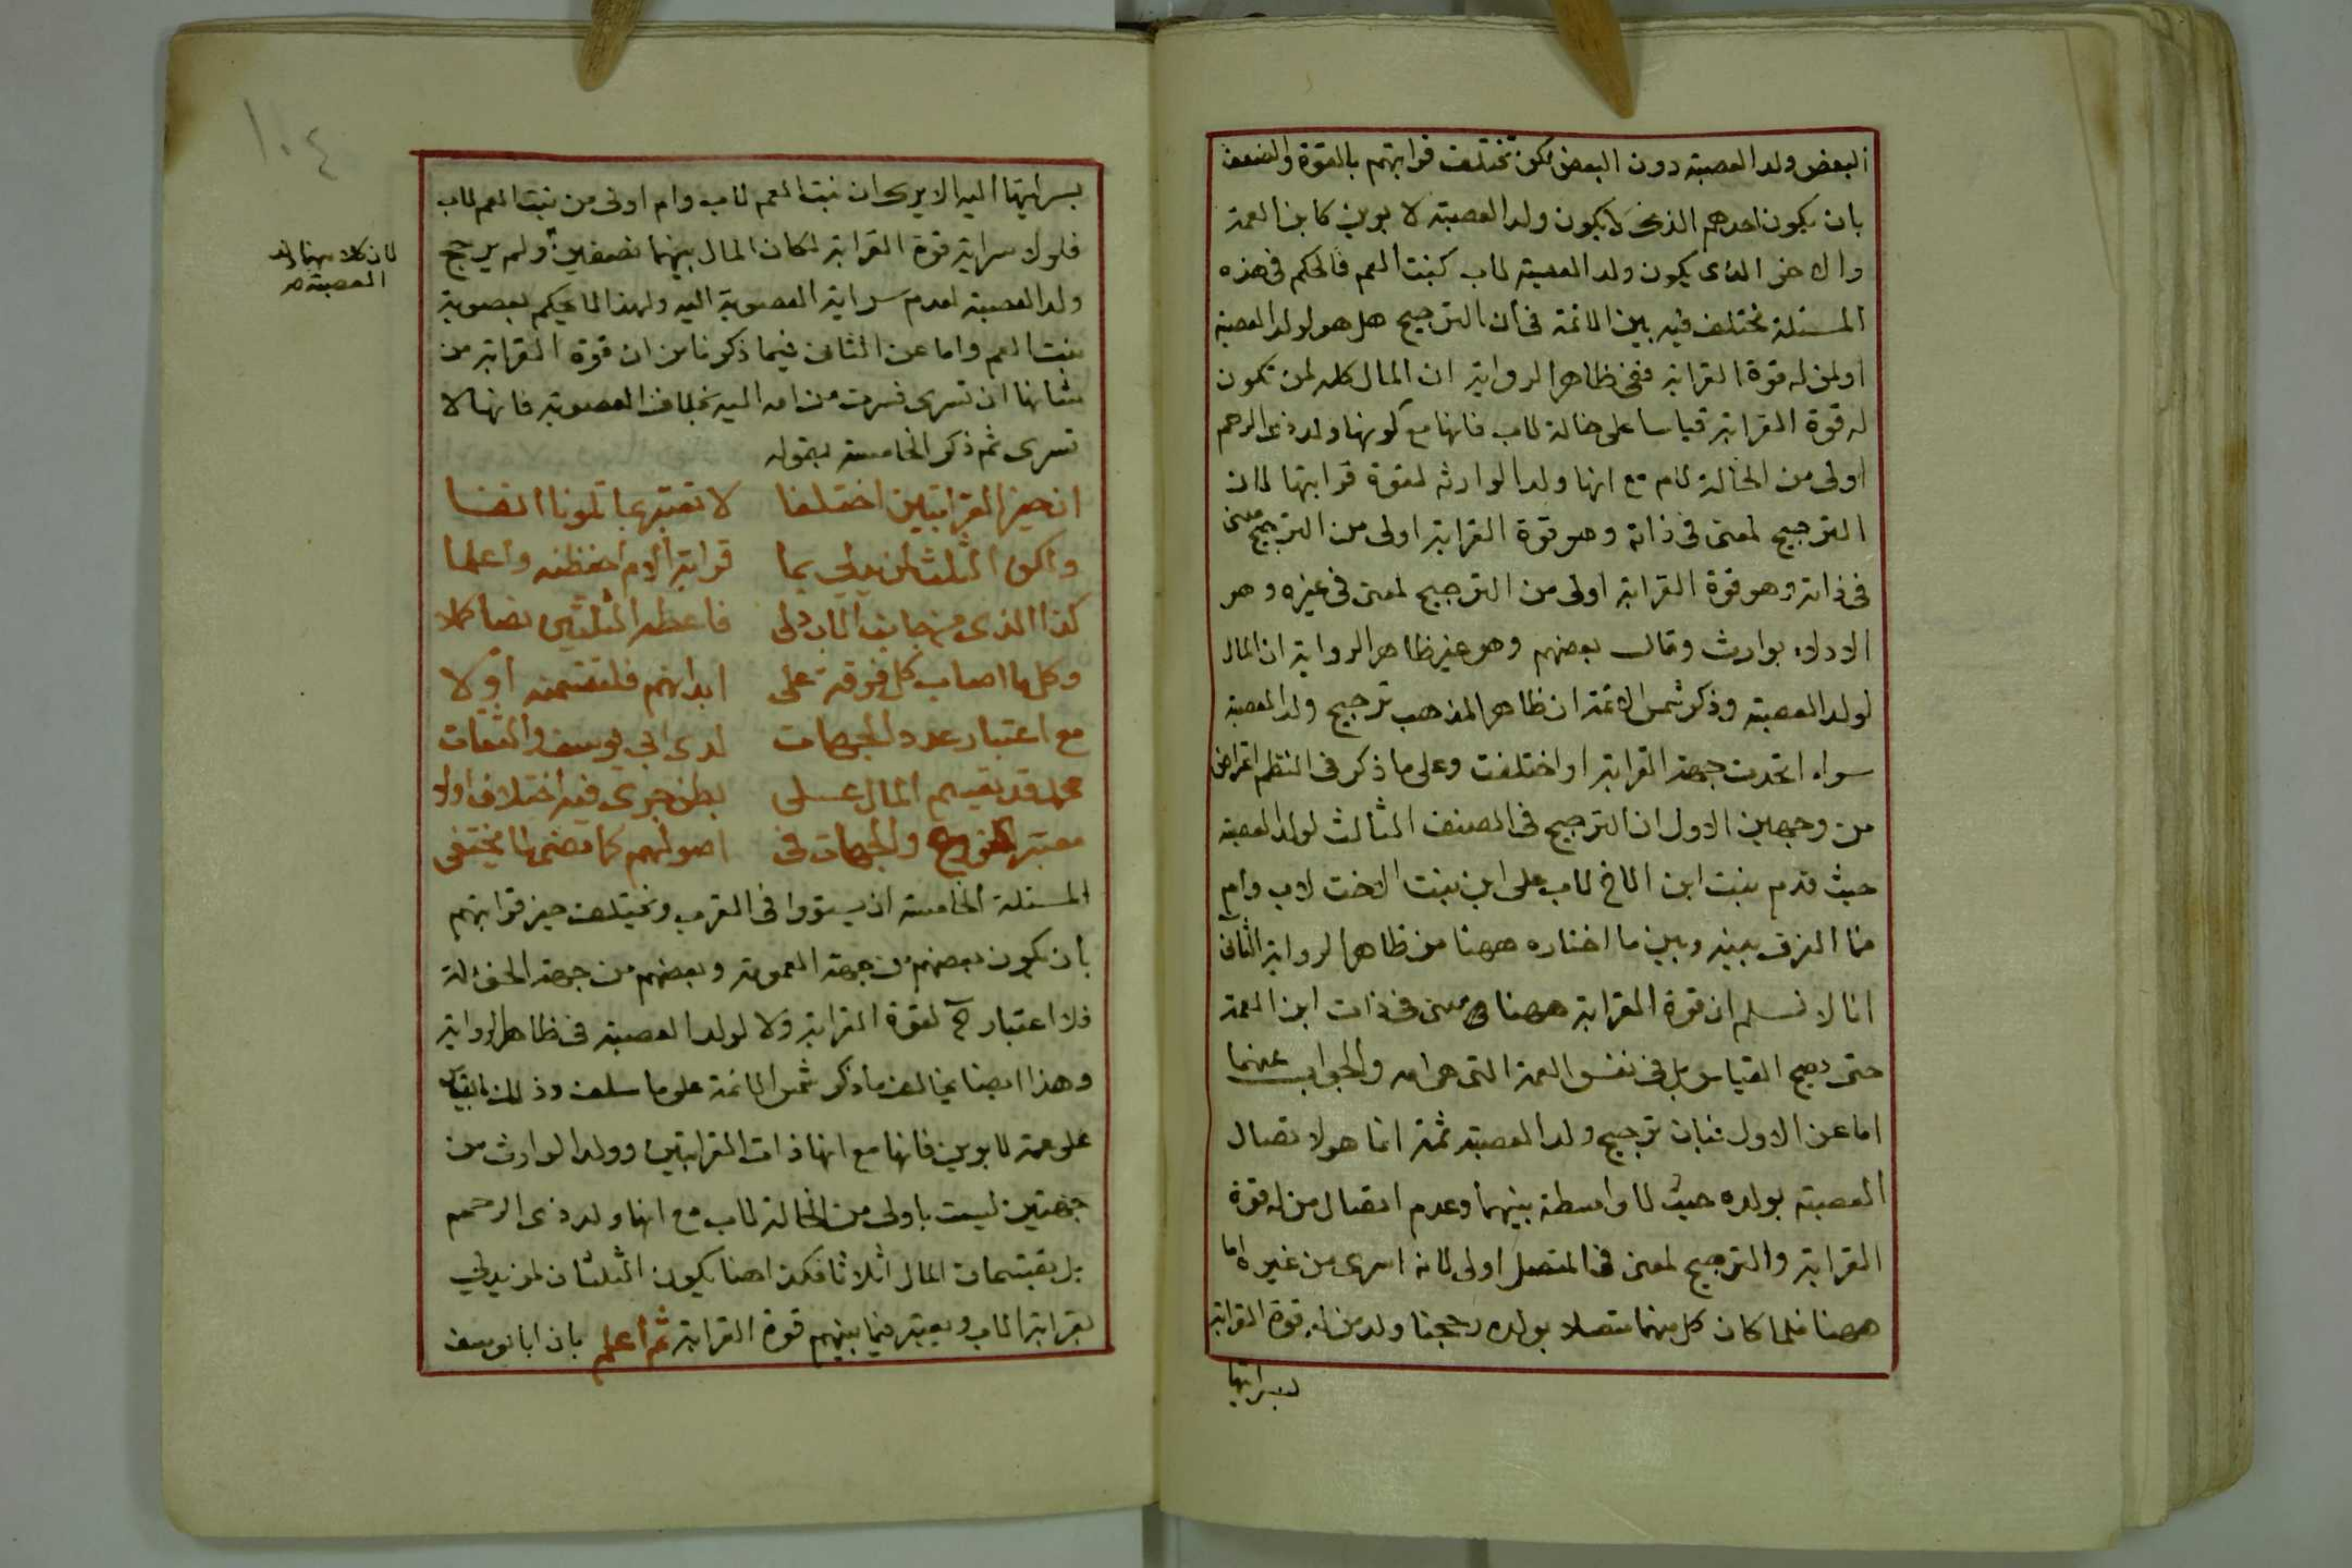 البعض ولد العصبة دون البعض لكن تختلف قرابتهم بالقوة والضعف
بان يكون احدهم الذى لا يكون ولد العصبة لابوين كابن العمة
والاخر الذى يكون ولد العصبة لاب كبنت العم فالحكم فى هذه
المسئلة مختلف فيه بين الائمة فى ان الترجيح هل هو لولد العصبة
او لمن له قوة القرابة ففى ظاهر الرواية ان المال كله لمن تكون
له قوة القرابة قياسا على خالة لاب فانها مع كونها ولد ذى الرحم
اولى من الخالة لام مع انها ولد الوارثه لقوة قرابتها لان
الترجيح لمعنى فى ذاته وهو قوة القرابة اولى من الترجيح لمعنى
فى ذاته وهو قوة القرابة اولى من الترجيح لمعنى فى غيره وهو
الادلاء بوارث وقال بعضهم وهو غير ظاهر الرواية ان المال
لولد العصبة وذكر شمس الائمة ان ظاهر المذهب ترجيح ولد العصبة
سواء اتحدت جهة القرابة او اختلفت وعلى ما ذكر فى النظم اعتراض
من وجهين الاول ان الترجيح فى الصنف الثالث لولد العصبة
حيث قدم بنت ابن الاخ لاب على ابن بنت الاخت لاب وام
فما الفرق بينه وبين ما اختاره ههنا من ظاهر الرواية الثانى
انا لا نسلم ان قوة القرابة ههنا معنى فى ذات ابن العمة
حتى يصح القياس بل فى نفس العمة التى هى امه والجواب عنهما
اما عن الاول فبان ترجيح ولد العصبة ثمة انما هو لاتصال
العصبة بولده حيث لا واسطة بينهما وعدم اتصال من له قوة
القرابة والترجيح لمعنى فى المتصل اولى لانه اسرى من غيره اما
ههنا فلما كان كل منهما متصلا بولده رجحنا ولد من له قوة القرابة
لسرايتها
بسرايتها اليه الا يرى ان بنت العم لاب وام اولى من بنت العم لاب
فلولا سراية قوة القرابة لكان المال بينهما نصفين ولم يرجح
ولد العصبة لعدم سراية العصوبة اليه ولهذا لا يحكم بعصوبة
بنت العم واما عن الثانى فيما ذكرنا من ان قوة القرابة من
شانها ان تسرى فسرت من امه اليه بخلاف العصوبة فانها لا
تسرى ثم ذكر الخامسة بقوله
ان حيز القرابتين اختلفا لا تعتبر ما تلونا انفا
واكون الثلث لمن يدلى بما قرابة الام احفظنه واعلما
كذا الذى من جانب الاب دلى فاعطه الثلثين نصا كملا
وكل ما اصاب كل فرقة على ابدانهم فلتقسمنه اولا
مع اعتبار عدد الجهات لدى ابى يوسف والثقات
محمد قد يقسم المال على بطن جرى فيه اختلاف اولا
معتبر الفروع والجهات فى اصولهم كما مضى لا يختفى
المسئلة الخامسة ان يستووا فى القرب وتختلف حيز قرابتهم
بان يكون بعضهم من جهة العمومة وبعضهم من جهة الخؤلة
فلا اعتبار ح لقوة القرابة ولا لولد العصبة فى ظاهر الرواية
وهذا ايضا يخالف ما ذكر شمس الائمة على ما سلف وذلك بالقياس
على عمة لابوين فانها مع انها ذات القرابتين وولد الوارث من
جهتين ليست باولى من الخالة لاب مع انها ولد ذى الرحم
بل يقتسمان المال اثلاثا فكذا هنا يكون الثلثان لمن يدلى
بقرابة الاب ويعتبر فيما بينهم قوة القرابة ثم اعلم بان ابا يوسف
لان كلا منهما ولد
العصبة صح
١٠٤